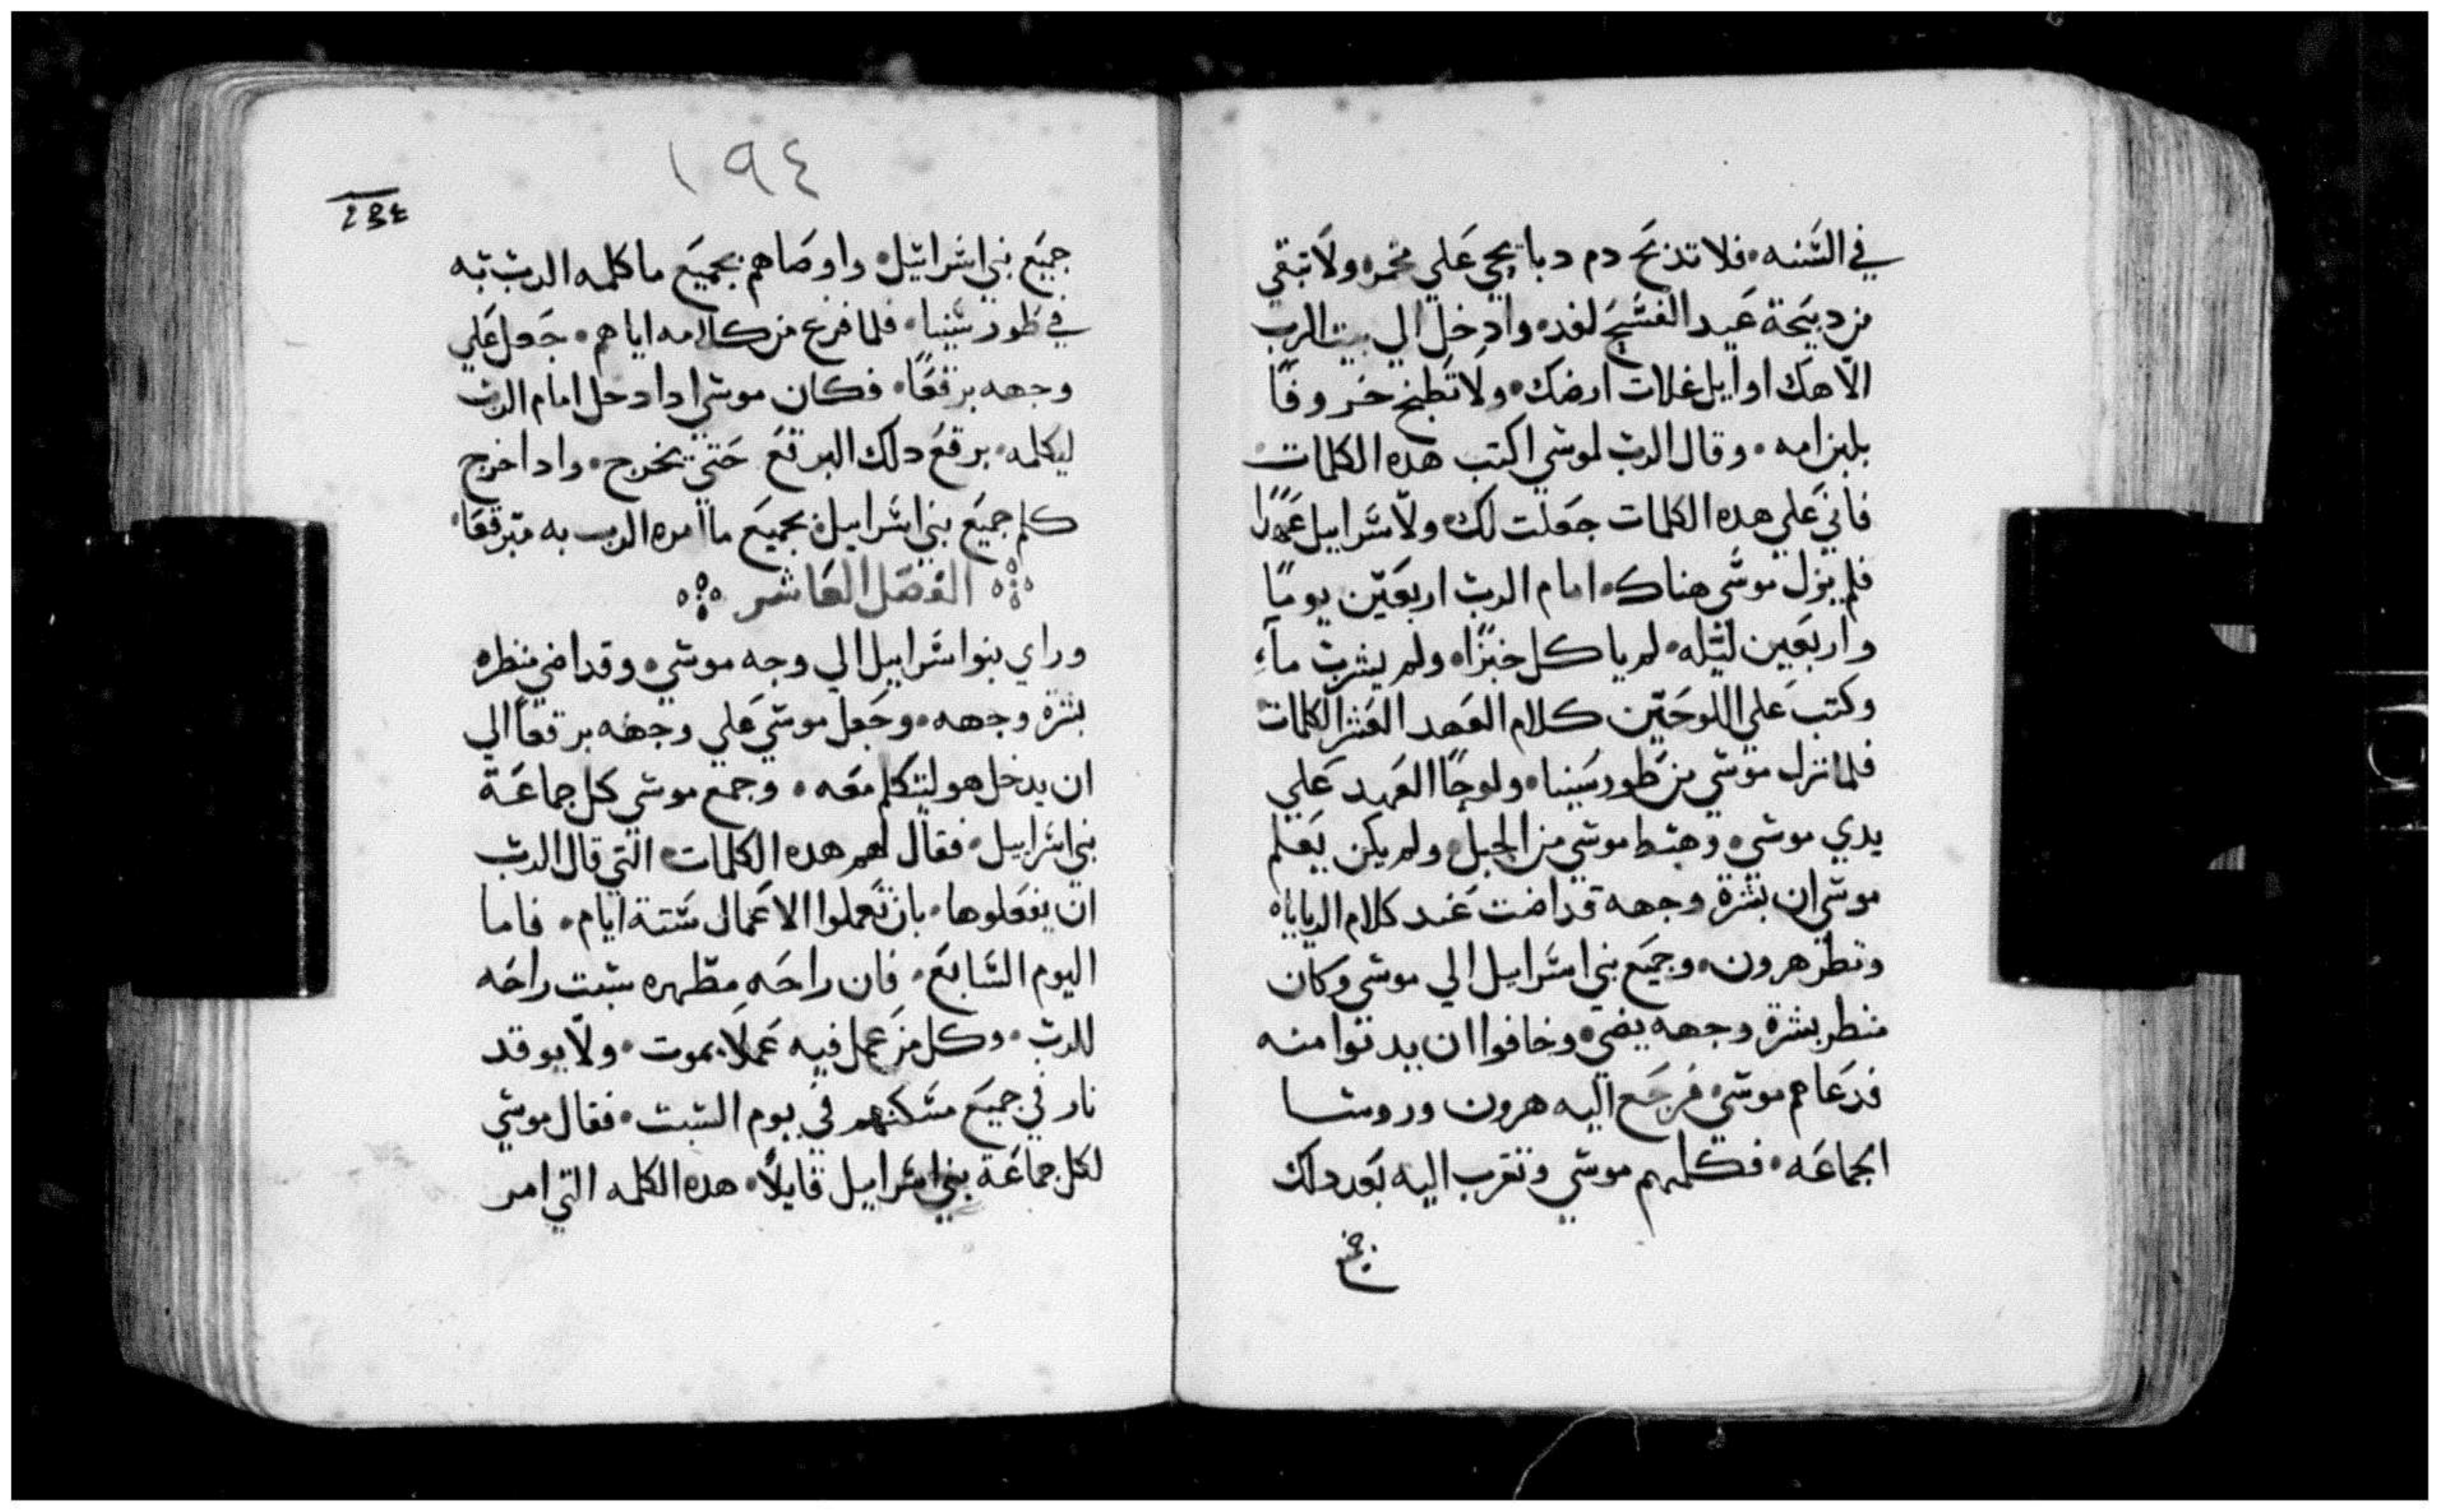 في السنه، فلا تذبح دم دبايحي علي مخمره ولا تبقي
من دبيحة عيد الفسح لغد، وادخل الي بيت الرب
الاهك اوايل غلات ارضك، ولا تطبخ خروفًا
بلبن امه، وقال الرب لموسي اكتب هده الكلمات
فاني علي هده الكلمات جعلت لك ولاسرابيل عهدًا
فلم يزل موسي هناك، امام الرب اربعين يومًا
واربعين ليله، لم ياكل خبزًا، ولم يشرب مآء
وكتب علي اللوحين كلام العهد العشر الكلمات
فلما نزل موسي من طور سينا، ولوحا العهد علي
يدي موسي، وهبط موسي من الجبل، ولم يكن يعلم
موسي ان بشرة وجهه قد اضت عند كلام الرب اياه
ونظر هرون، وجميع بني اسراييل الي موسي وكان
منطر بشرة وجهه يضي، وخافوا ان يدنوا منه
فدعاهم موسي، فرجع اليه هرون وروسا
الجماعه، فكلمهم موسي وتقرب اليه بعد دلك
١٩٤
جميع بني اسراييل، واوصاهم بجميع ما كلمه الرب به
في طور سينا، فلما فرغ من كلامه اياهم، جعل علي
وجهه برقعًا، فكان موسي ادا دخل امام الرب
ليكلمه، يرفع دلك البرقع حتي يخرج، وادا خرج
كلم جميع بني اسراييل، بجميع ما امره الرب به متبرقعًا
الفصل العاشر
وراي بنوا اسراييل الي وجه موسي، وقد اضي منظره
بشرة وجهه، وجعل موسي علي وجهه برقعًا الي
ان يدخل هو ليتكلم معه، وجمع موسي كل جماعة
بني اسراييل، فقال لهم هده الكلمات، التي قال الرب
ان يفعلوها، بان تعملوا الاعمال ستة ايام، فاما
اليوم السابع، فان راحه مطهره سبت راحه
للرب، وكل من عمل فيه عملًا يموت، ولا يوقد
نار في جميع مسكنهم في يوم السبت، فقال موسي
لكل جماعة بني اسراييل قايلًا، هده الكلمه التي امر